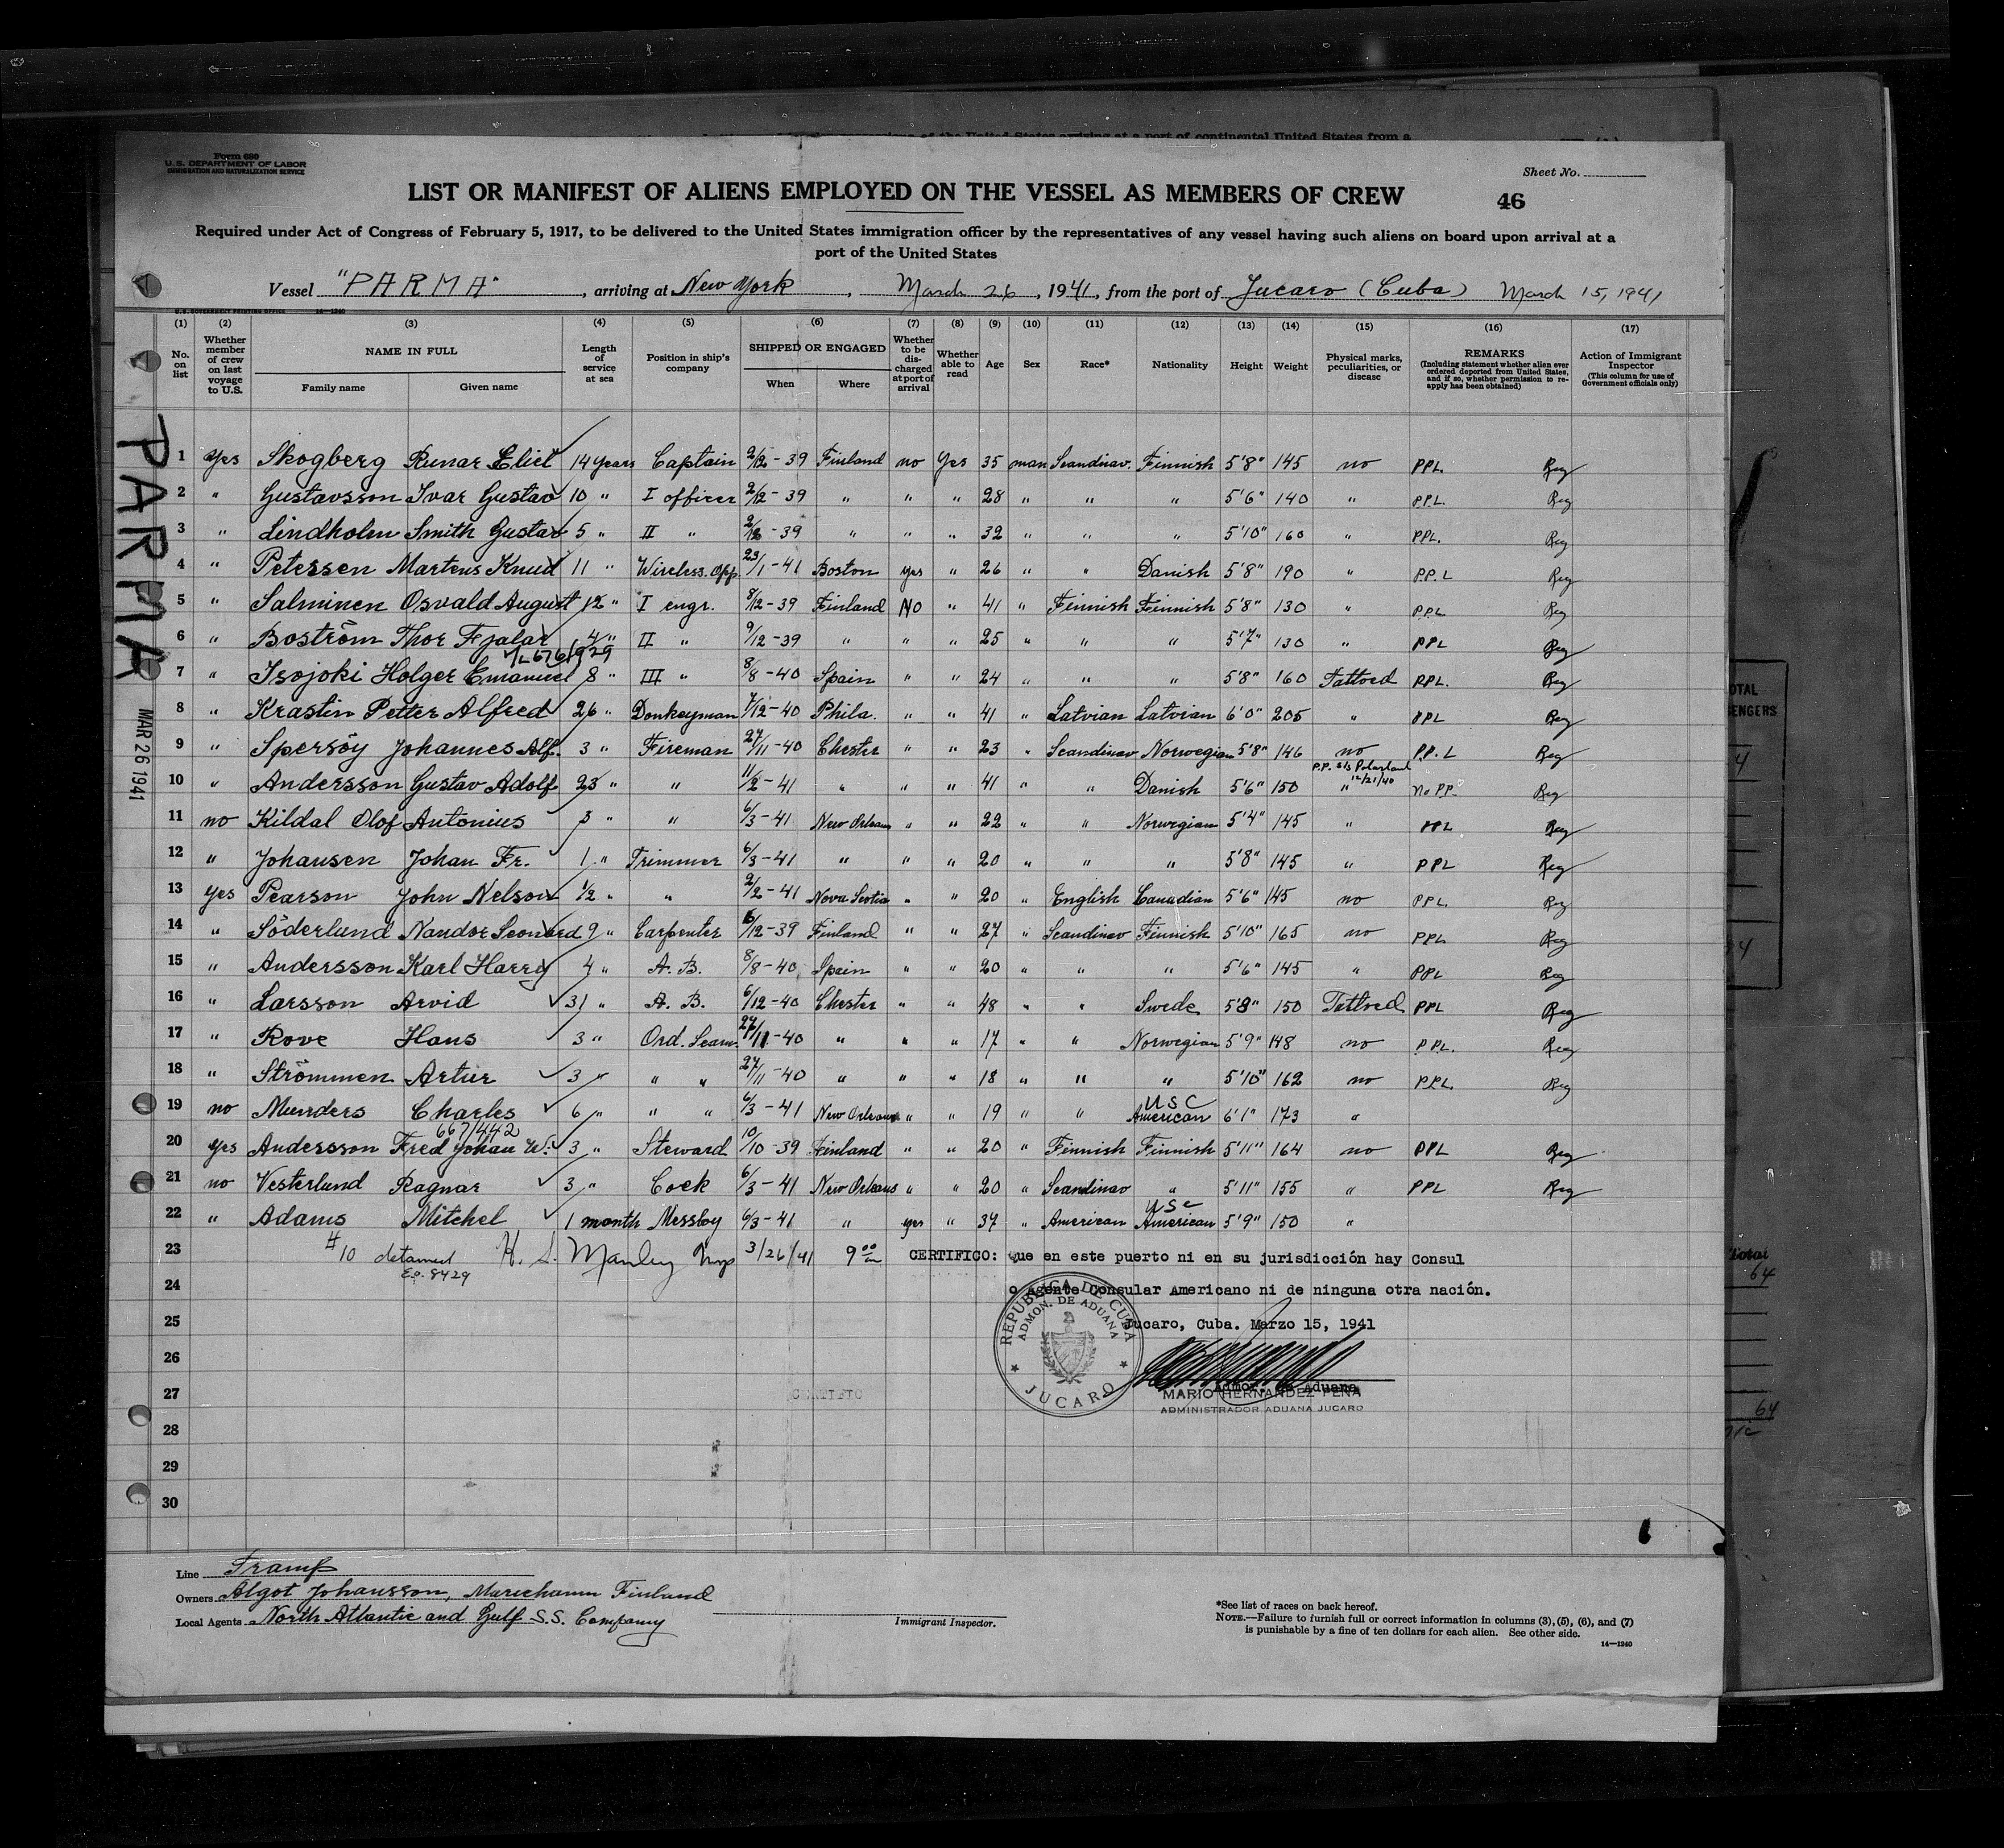 Form 680
U.S. DEPARTMENT OF LABOR
IMMIGRATION AND NATURALIZATION SERVICE
Sheet No.
LIST OR MANIFEST OF ALIENS EMPLOYED ON THE VESSEL AS MEMBERS OF CREW
46
Required under Act of Congress of February 5, 1917, to be delivered to the United States immigration officer by the representatives of any vessel having such aliens on board upon arrival at a
port of the United States
Vessel "PARMA", arriving at New York, March 26, 1941, from the port of Jucaro (Cuba) March 15, 1941
U.S. GOVERNMENT PRINTING OFFICE 14—1240
(1) (2) (3) (4) (5) (6) (7) (8) (9) (10) (11) (12) (13) (14) (15) (16) (17)
No. on list
Whether member of crew on last voyage to U.S.
NAME IN FULL
Family name Given name
Length of service at sea
Position in ship's company
SHIPPED OR ENGAGED
When Where
Whether to be discharged at port of arrival
Whether able to read
Age
Sex
Race*
Nationality
Height
Weight
Physical marks, peculiarities, or disease
REMARKS
(Including statement whether alien ever ordered deported from United States, and if so, whether permission to reapply has been obtained)
Action of Immigrant Inspector
(This column for use of Government officials only)
PARMA
MAR 26 1941
1 Yes Skogberg Runar Eliel 14 years Captain 2/12-39 Finland no Yes 35 man Scandinav. Finnish 5'8" 145 no PPL Reg
2 " Gustavsson Ivar Gustav 10 " I officer 2/12-39 " " " 28 " " " 5'6" 140 " PPL. Reg
3 " Lindholm Smith Gustav 5 " II " 2/12-39 " " " 32 " " " 5'10" 160 " PPL. Reg
4 " Petersen Martens Knud 11 " Wireless. opp. 23/1-41 Boston yes " 26 " " Danish 5'8" 190 " P.P.L Reg
5 " Salminen Osvald August 12 " I engr. 8/12-39 Finland No " 41 " Finnish Finnish 5'8" 130 " PPL Reg
6 " Boström Thor Fjalar 4 " II " 9/12-39 " " " 25 " " " 5'7" 130 " PPL Reg
7 " Isojoki Holger Emanuel 8 " III " 8/8-40 Spain " " 24 " " " 5'8" 160 Tattoed PPL. Reg
8 " Krastin Petter Alfred 26 " Donkeyman 7/12-40 Phila. " " 41 " Latvian Latvian 6'0" 205 " PPL Reg
9 " Spersöy Johannes Alf. 3 " Fireman 27/11-40 Chester " " 23 " Scandinav Norwegian 5'8" 146 no P.P.L Reg
P.P. S/S Polarland
12/21/40
10 " Andersson Gustav Adolf 23 " " 11/2-41 " " " 41 " " Danish 5'6" 150 " no PP. Reg
11 no Kildal Olof Antonius 3 " " 6/3-41 New Orleans " " 22 " " Norwegian 5'4" 145 " PPL Reg
12 " Johansen Johan Fr. 1 " Trimmer 6/3-41 " " " 20 " " " 5'8" 145 " PPL Reg
13 Yes Pearson John Nelson 1/2 " " 2/2-41 Nova Scotia " " 20 " English Canadian 5'6" 145 no PPL. Reg
14 " Söderlund Nandor Leonard 9 " Carpenter 6/12-39 Finland " " 27 " Scandinav Finnish 5'10" 165 no PPL Reg
15 " Andersson Karl Harry 4 " A.B. 8/8-40 Spain " " 20 " " " 5'6" 145 " PPL Reg
16 " Larsson Arvid 31 " A.B. 6/12-40 Chester " " 48 " " Swede 5'8" 150 Tattoed PPL Reg
17 " Rove Hans 3 " Ord. Seam. 27/11-40 " " " 17 " " Norwegian 5'9" 148 no PPL. Reg
18 " Strömmen Artur 3 " " " 27/11-40 " " " 18 " " " 5'10" 162 no PPL. Reg
USC
19 no Munders Charles 6 " " " 6/3-41 New Orleans " " 19 " " American 6'1" 173 "
667/442
20 Yes Andersson Fred Johan W. 3 " Steward 10/10-39 Finland " " 20 " Finnish Finnish 5'11" 164 no PPL Reg
21 no Vesterlund Ragnar 3 " Cock 6/3-41 New Orleans " " 20 " Scandinav " 5'11" 155 " PPL Reg
USC
22 " Adams Mitchel 1 month Messboy 6/3-41 " yes " 37 " American American 5'9" 150 "
23 #10 detained H. S. Manley Insp 3/26/41 9 00
E.o. 8429
CERTIFICO: que en este puerto ni en su jurisdicción hay Consul
24 o Agente Consular Americano ni de ninguna otra nación.
25 Jucaro, Cuba. Marzo 15, 1941
26
REPUBLICA DE CUBA
ADMON. DE ADUANA
JUCARO
Admor. de Aduana
27 CERTIFIC
MARIO HERNANDEZ PEÑA
ADMINISTRADOR ADUANA JUCARO
28
29
30
Line Tramp
Owners Algot Johansson, Mariehamn Finland
Local Agents North Atlantic and Gulf S.S. Company
Immigrant Inspector.
*See list of races on back hereof.
NOTE.—Failure to furnish full or correct information in columns (3), (5), (6), and (7)
is punishable by a fine of ten dollars for each alien. See other side.
14—1240
Total
64
64